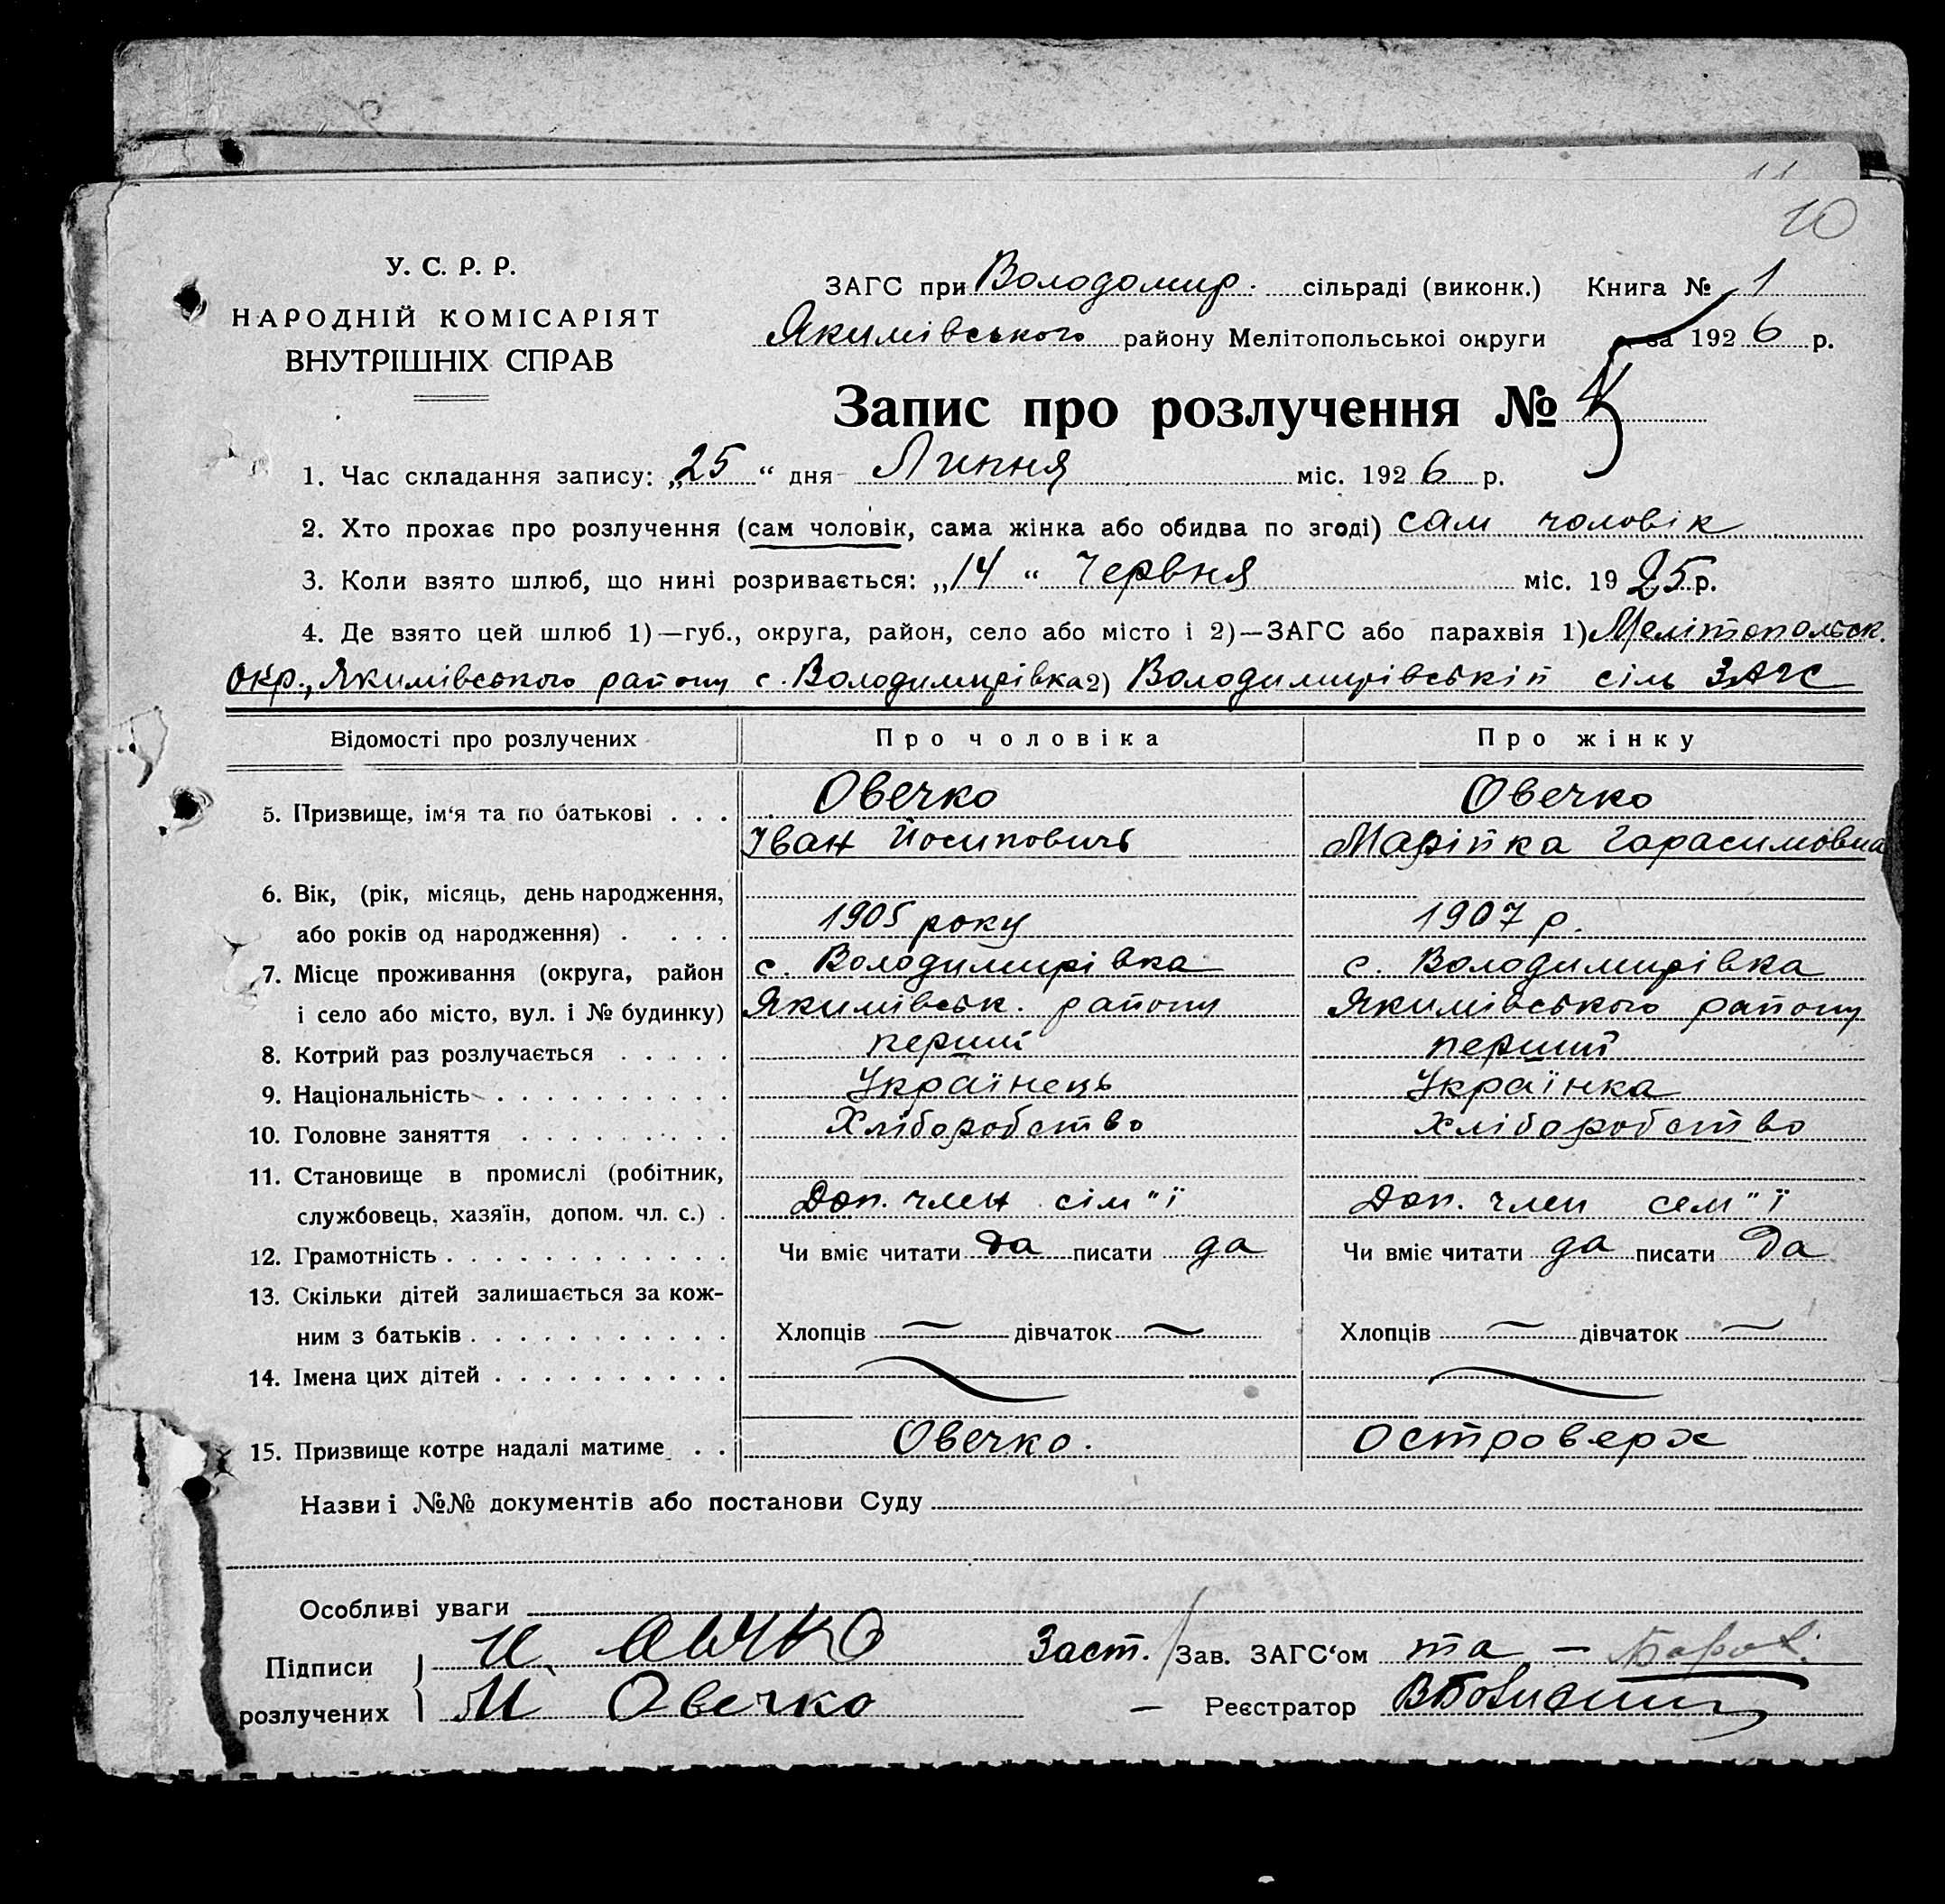 10
У. С. Р. Р.
НАРОДНІЙ КОМІСАРІЯТ
ВНУТРІШНІХ СПРАВ
ЗАГС при Володомир. сільраді (виконк.) Книга № 1
Якимівського району Мелітопольської округи за 1926 р.
Запис про розлучення № 5
1. Час складання запису: „25“ дня Липня міс. 1926 р.
2. Хто прохає про розлучення (сам чоловік, сама жінка або обидва по згоді) сам чоловік
3. Коли взято шлюб, що нині розривається: „14“ Червня міс. 1925 р.
4. Де взято цей шлюб 1)—губ., округа, район, село або місто і 2)—ЗАГС або парахвія 1) Мелітопольск.
Окр., Якимівського району с. Володимирівка 2) Володимирівській сіль ЗАГС
Відомості про розлучених Про чоловіка Про жінку
5. Призвище, ім‘я та по батькові . . . Овечко Овечко
Іван Йосиповичь Марійка Гарасимовна
6. Вік, (рік, місяць, день народження,
або років од народження) . . . . 1905 року 1907 р.
7. Місце проживання (округа, район с. Володимирівка с. Володимирівка
і село або місто, вул. і № будинку) Якимівськ. району Якимівського району
8. Котрий раз розлучається . . . . . перший перший
9. Національність . . . . . . . . . . Українець Українка
10. Головне заняття . . . . . . . . . Хліборобство Хліборобство
11. Становище в промислі (робітник,
службовець, хазяїн, допом. чл. с.) . Доп. член сім"ї Доп. член сем"ї
12. Грамотність . . . . . . . . . . . . Чи вміє читати да писати да Чи вміє читати да писати да
13. Скільки дітей залишається за кож-
ним з батьків . . . . . . . . . . . Хлопців — дівчаток — Хлопців — дівчаток —
14. Імена цих дітей . . . . . . . . . .
15. Призвище котре надалі матиме . . Овечко. Островерх
Назви і №№ документів або постанови Суду
Особливі уваги
Підписи И. Заст. / Зав. ЗАГС‘ом та —
розлучених М Овечко — Реєстратор